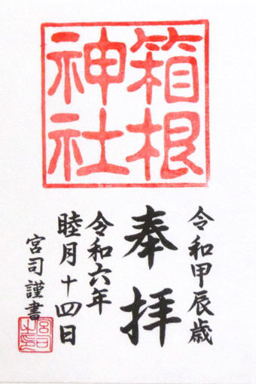 箱根
神社
令和甲辰歳
奉拝
令和六年
睦月十四日
宮司謹書